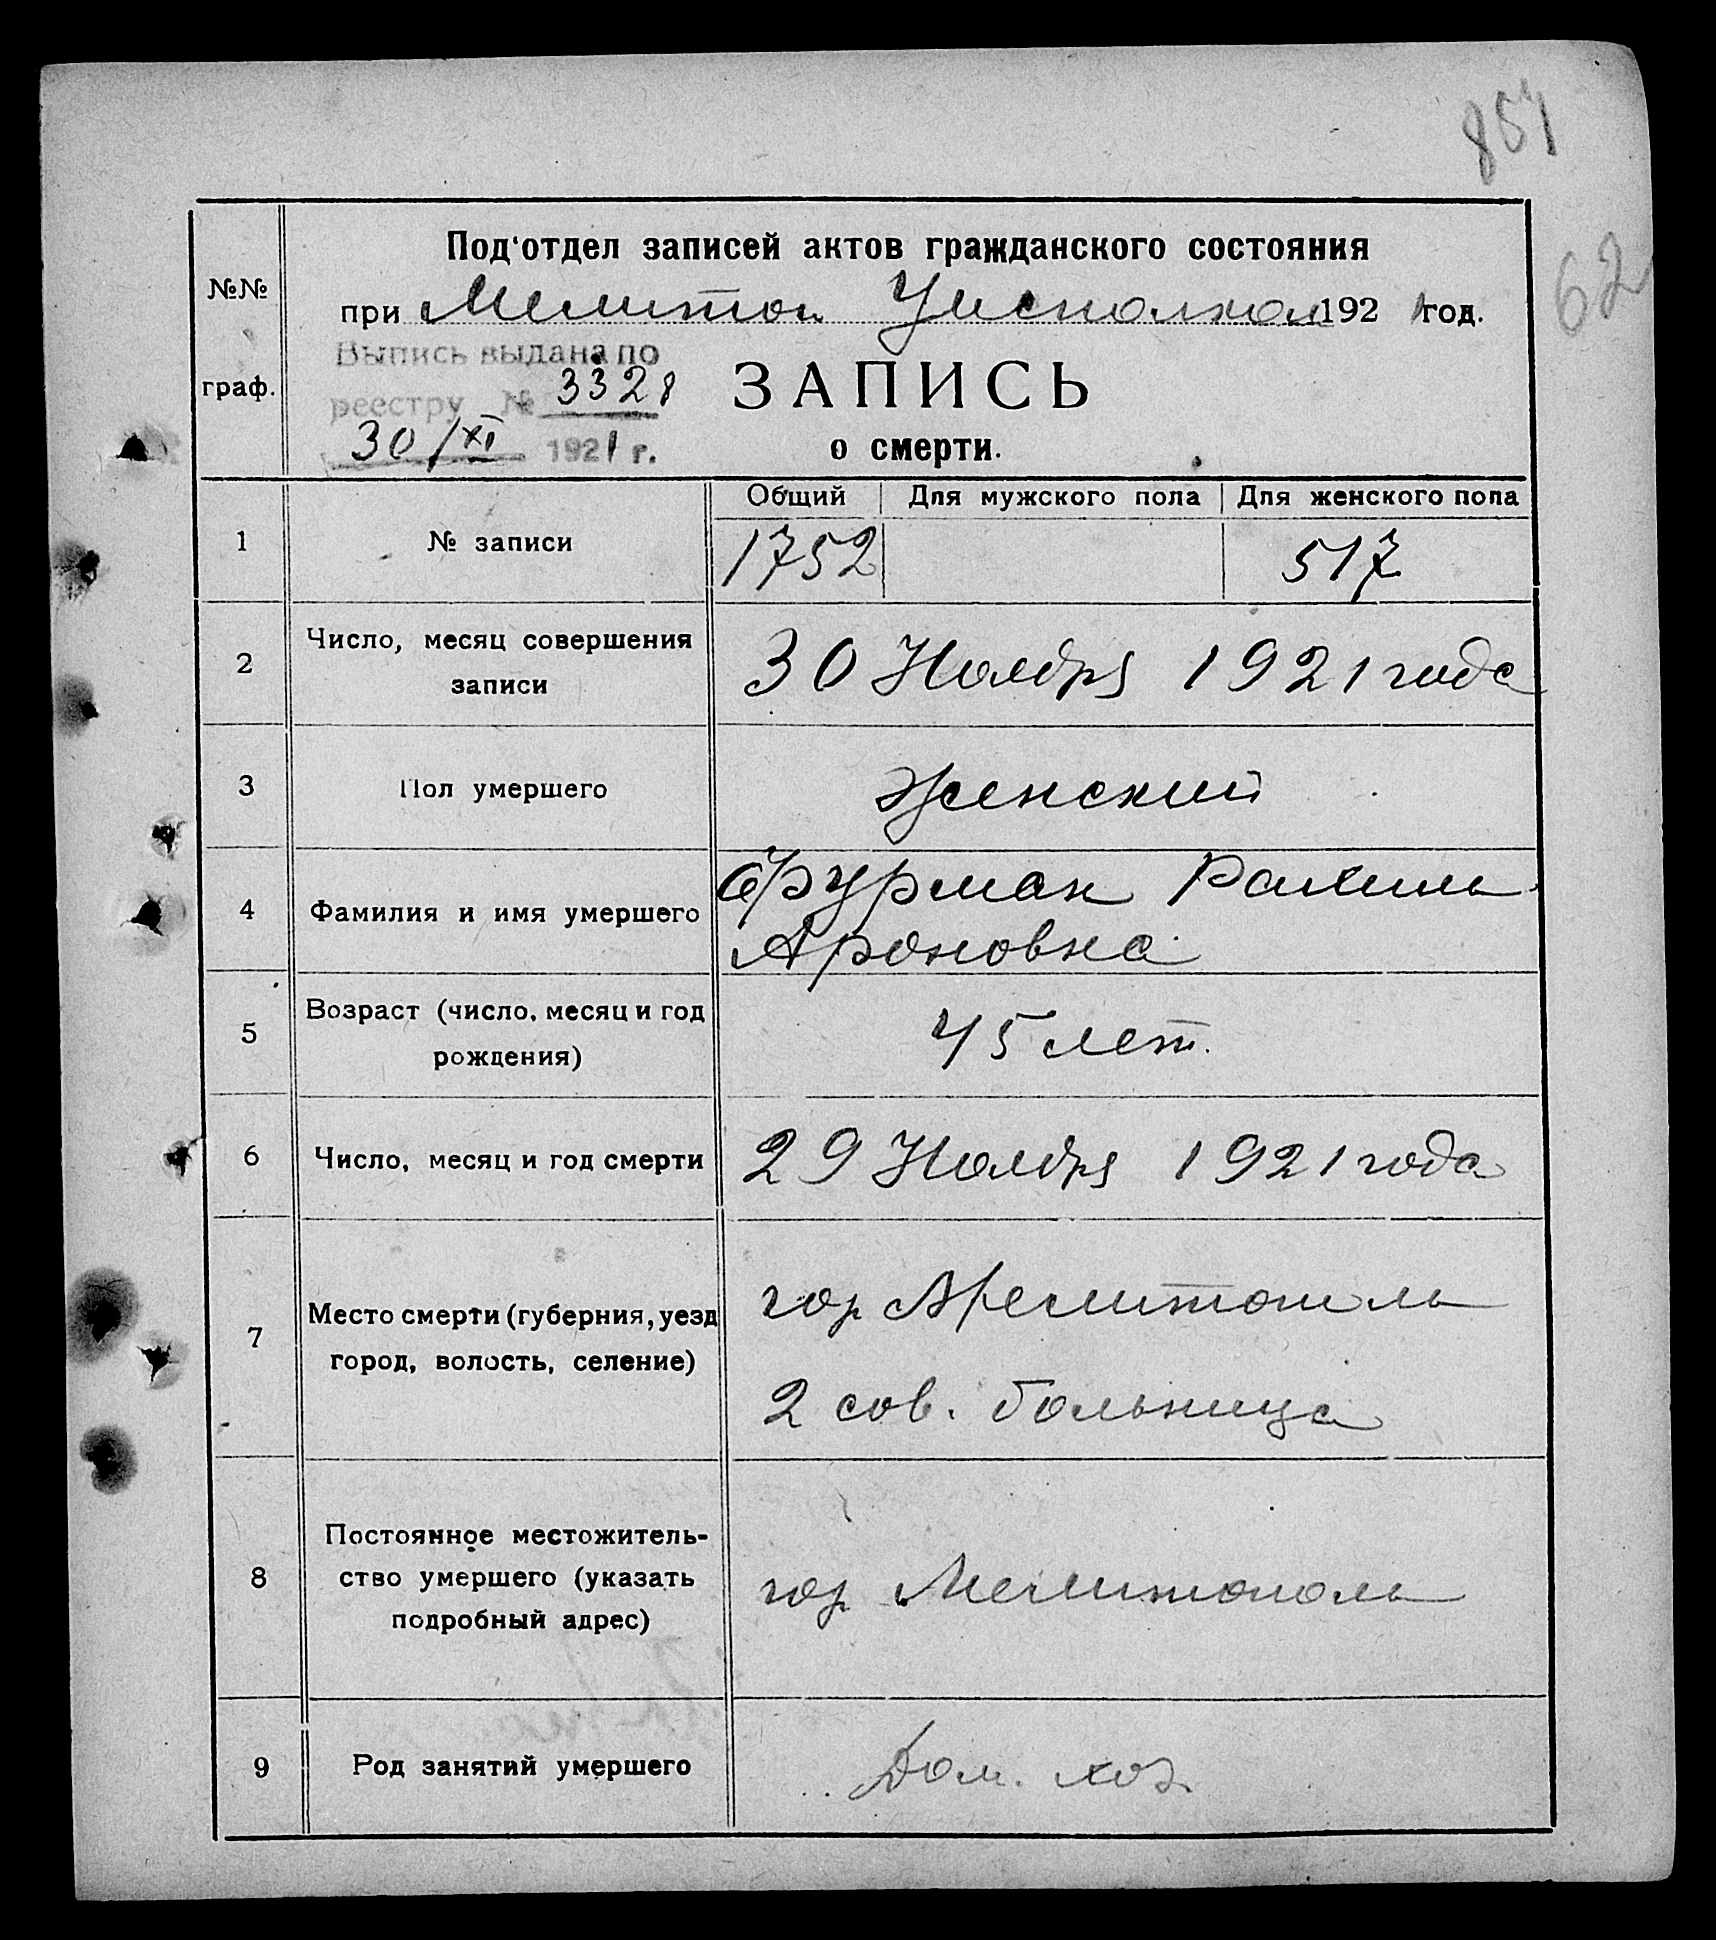 857
62
Под'отдел записей актов гражданского состояния
при Мелитоп. Уисполкоме 1921 год.
Выпись выдана по
реестру № 3328
30/XI 1921 г.
№№
граф.
ЗАПИСЬ
о смерти.
Общий Для мужского пола Для женского пола
1 № записи 1752 517
2 Число, месяц совершения
записи
30 Ноября 1921 года
3 Пол умершего женский
4 Фамилия и имя умершего
Фурман Рахиль
Ароновна
5 Возраст (число, месяц и год
рождения)
45 лет.
6 Число, месяц и год смерти 29 Ноября 1921 года
7 Место смерти (губерния, уезд
город, волость, селение)
гор Мелитополь
2 сов. больница
8 Постоянное местожитель-
ство умершего (указать
подробный адрес)
гор Мелитополь
9 Род занятий умершего Дом. хоз.